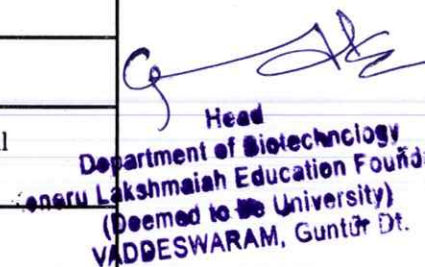 Head
Department of Biotechnology
oneru Lakshmaiah Education Founda
(Deemed to be University)
VADDESWARAM, Guntur Dt.